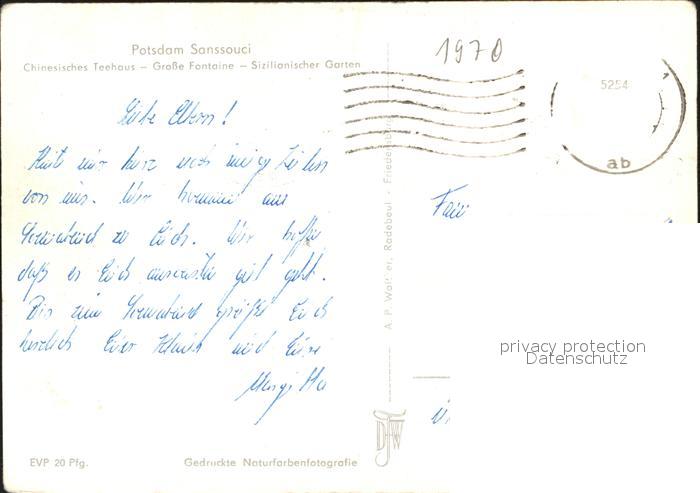 Potsdam Sanssouci
Chinesisches Teehaus – Große Fontaine – Sizilianischer Garten
1970
5254
ab
Liebe Eltern!
Heut nur kurz noch einige Zeilen
von uns. Wir kommen am
Sonnabend zu Euch. Wir hoffen
daß es Euch ansonsten gut geht.
Bis zum Sonnabend grüßt Euch
herzlich Euer Klaus und Eure
Margitta
Fam
A. P. Radebeul · Friedensburg
privacy protection
Datenschutz
EVP 20 Pfg.
Gedruckte Naturfarbenfotografie